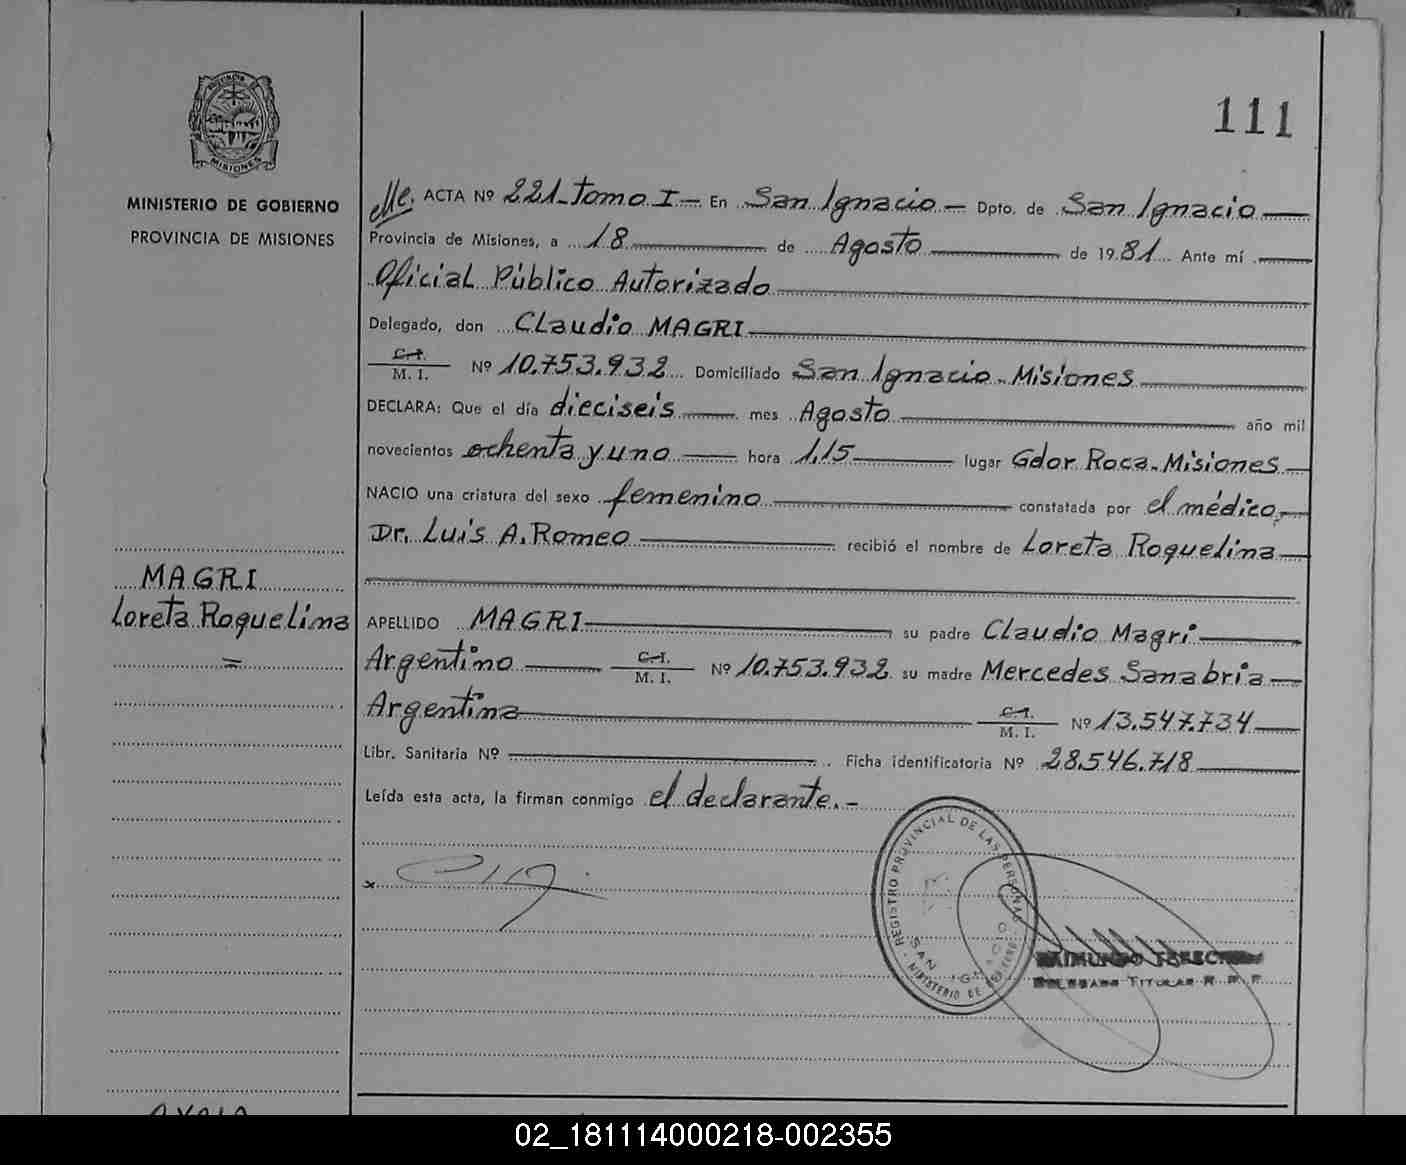 PROVINCIA DE
MISIONES
MINISTERIO DE GOBIERNO
PROVINCIA DE MISIONES
MAGRI
Loreta Roquelina
=
111
ACTA Nº 221-Tomo I- En San Ignacio- Dpto. de San Ignacio
Provincia de Misiones, a 18 de Agosto de 1981 Ante mí
Oficial Público Autorizado
Delegado, don Claudio MAGRI
C.I.
M. I. Nº 10.753.932 Domiciliado San Ignacio-Misiones
DECLARA: Que el día dieciseis mes Agosto año mil
novecientos ochenta y uno hora 1,15 lugar Gdor Roca-Misiones
NACIO una criatura del sexo femenino constatada por el médico
Dr. Luis A. Romeo recibió el nombre de Loreta Roquelina
APELLIDO MAGRI su padre Claudio Magri
Argentino C.I.
M. I. Nº 10.753.932 su madre Mercedes Sanabria
Argentina C.I.
M. I. Nº 13.547.734
Libr. Sanitaria Nº Ficha identificatoria Nº 28.546.718
Leída esta acta, la firman conmigo el declarante.-
x
REGISTRO PROVINCIAL DE LAS PERSONAS
SAN IGNACIO
MINISTERIO DE GOBIERNO
RAIMUNDO
DELEGADO TITULAR R. P. P.
02_181114000218-002355